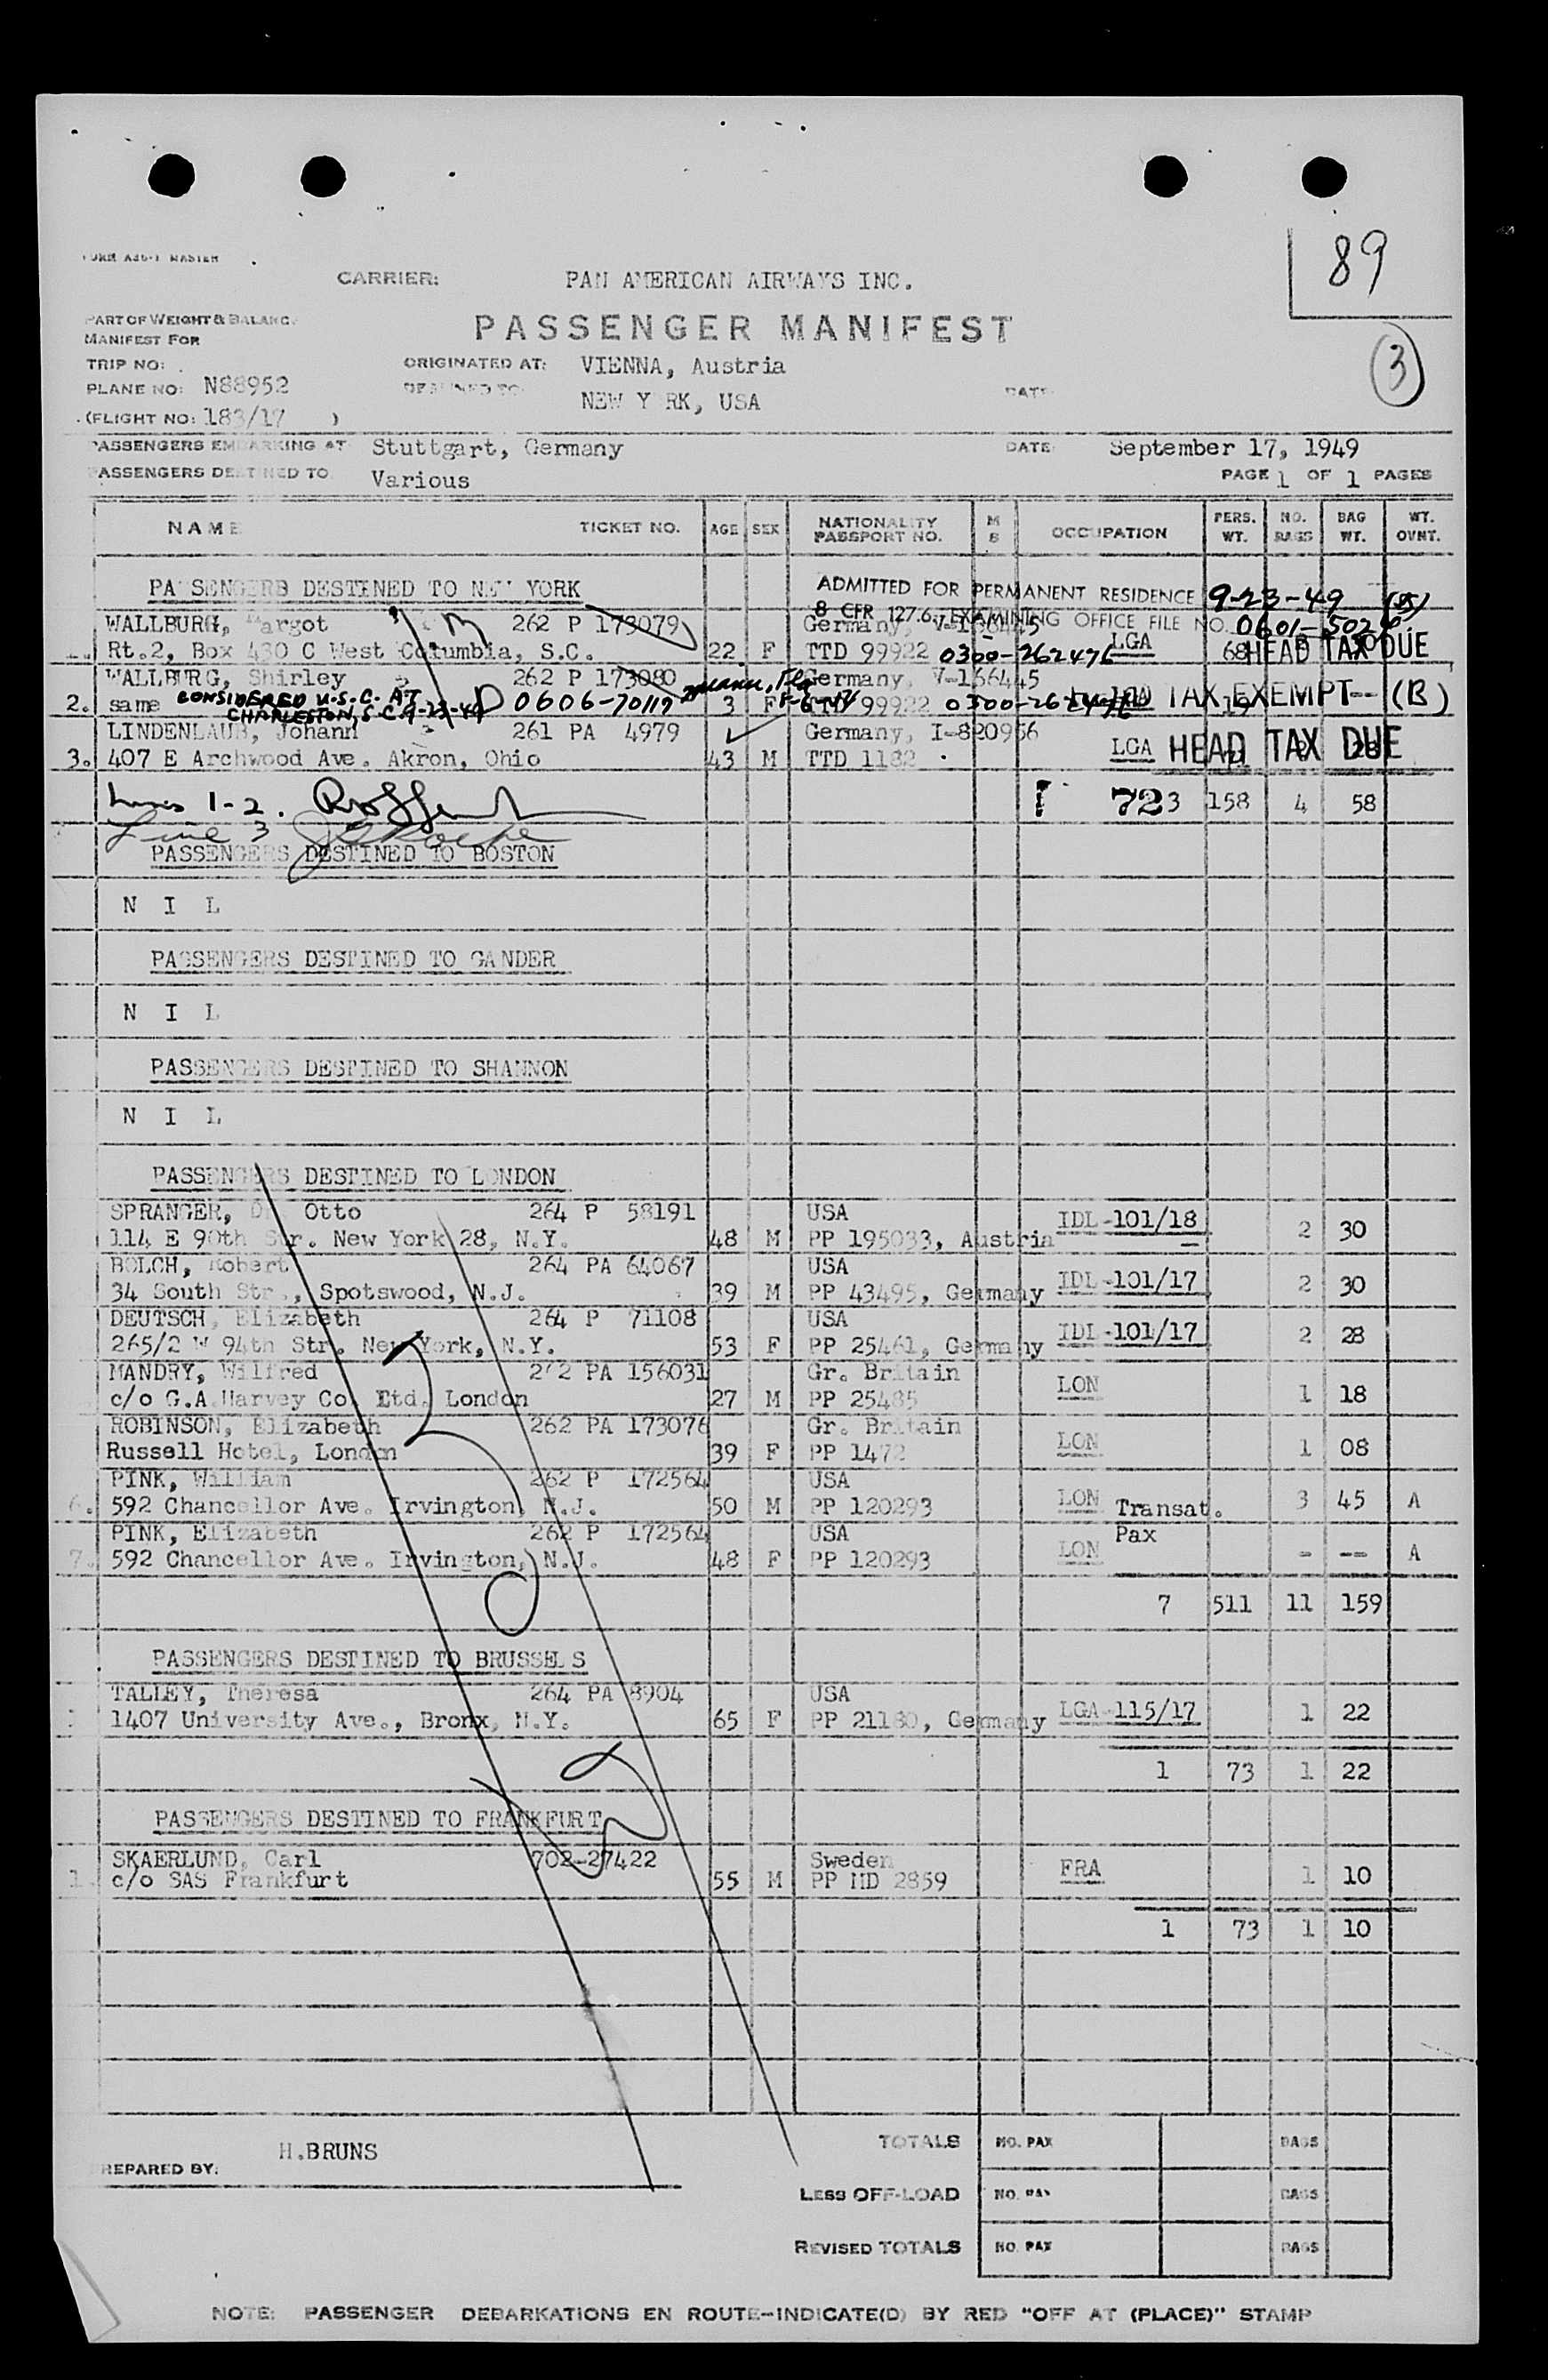 89
FORM A36-1 MASTER
CARRIER: PAN AMERICAN AIRWAYS INC.
PART OF WEIGHT & BALANC.
PASSENGER MANIFEST
MANIFEST FOR
3
TRIP NO:
ORIGINATED AT: VIENNA, Austria
PLANE NO: N88952
DESTINED TO: NEW Y RK, USA
DATE
(FLIGHT NO: 183/17 )
PASSENGERS EMBARKING AT Stuttgart, Germany DATE September 17, 1949
PASSENGERS DESTINED TO Various PAGE 1 OF 1 PAGES
NAME TICKET NO. AGE SEX NATIONALITY PASSPORT NO. M S OCCUPATION PERS. WT. NO. BAGS BAG WT. WT. OVNT.
PASSENGERS DESTINED TO NEW YORK
ADMITTED FOR PERMANENT RESIDENCE 9-23-49
8 CFR 127.6. EXAMINING OFFICE FILE NO.
WALLBURG, Margot 262 P 173079 Germany, V-166445
Rt.2, Box 430 C West Columbia, S.C. 22 F TTD 99922 0300-262476 LGA 68 HEAD TAX DUE
WALLBURG, Shirley 262 P 173080 Germany, V-166445
2. same CONSIDERED U.S.C. AT CHARLESTON, S.C. 9-23-49 0606-70119 Miami, Fla 3 F TTD 99922 HEAD TAX EXEMPT (B)
LINDENLAUB, Johann 261 PA 4979 Germany, I-820956
3. 407 E Archwood Ave. Akron, Ohio 43 M TTD 1182 LGA HEAD TAX DUE
Lines 1-2.
723 158 4 58
Line 3
PASSENGERS DESTINED TO BOSTON
N I L
PASSENGERS DESTINED TO GANDER
N I L
PASSENGERS DESTINED TO SHANNON
N I L
PASSENGERS DESTINED TO LONDON
SPRANGER, Otto 264 P 58191 USA
114 E 90th Str. New York 28, N.Y. 48 M PP 195033, Austria IDL-101/18 2 30
BOLCH, Robert 264 PA 64067 USA
34 South Str., Spotswood, N.J. 39 M PP 43495, Germany IDL-101/17 2 30
DEUTSCH, Elizabeth 264 P 71108 USA
265/2 W 94th Str. New York, N.Y. 53 F PP 25461, Germany IDL-101/17 2 28
MANDRY, Wilfred 262 PA 156031 Gr. Britain
c/o G.A.Harvey Co. Ltd. London 27 M PP 25485 LON 1 18
ROBINSON, Elizabeth 262 PA 173076 Gr. Britain
Russell Hotel, London 39 F PP 1472 LON 1 08
PINK, William 262 P 172564 USA
6. 592 Chancellor Ave. Irvington, N.J. 50 M PP 120293 LON Transat. 3 45 A
PINK, Elizabeth 262 P 172564 USA Pax
7. 592 Chancellor Ave. Irvington, N.J. 48 F PP 120293 LON - -- A
7 511 11 159
PASSENGERS DESTINED TO BRUSSELS
TALLEY, Theresa 264 PA 8904 USA
1 1407 University Ave., Bronx, N.Y. 65 F PP 21180, Germany LGA-115/17 1 22
1 73 1 22
PASSENGERS DESTINED TO FRANKFURT
SKAERLUND, Carl 702-27422 Sweden
1. c/o SAS Frankfurt 55 M PP MD 2859 FRA 1 10
1 73 1 10
TOTALS NO. PAX BAGS
H.BRUNS
PREPARED BY:
LESS OFF-LOAD NO. PAX BAGS
REVISED TOTALS NO. PAX BAGS
NOTE: PASSENGER DEBARKATIONS EN ROUTE-INDICATE(D) BY RED "OFF AT (PLACE)" STAMP